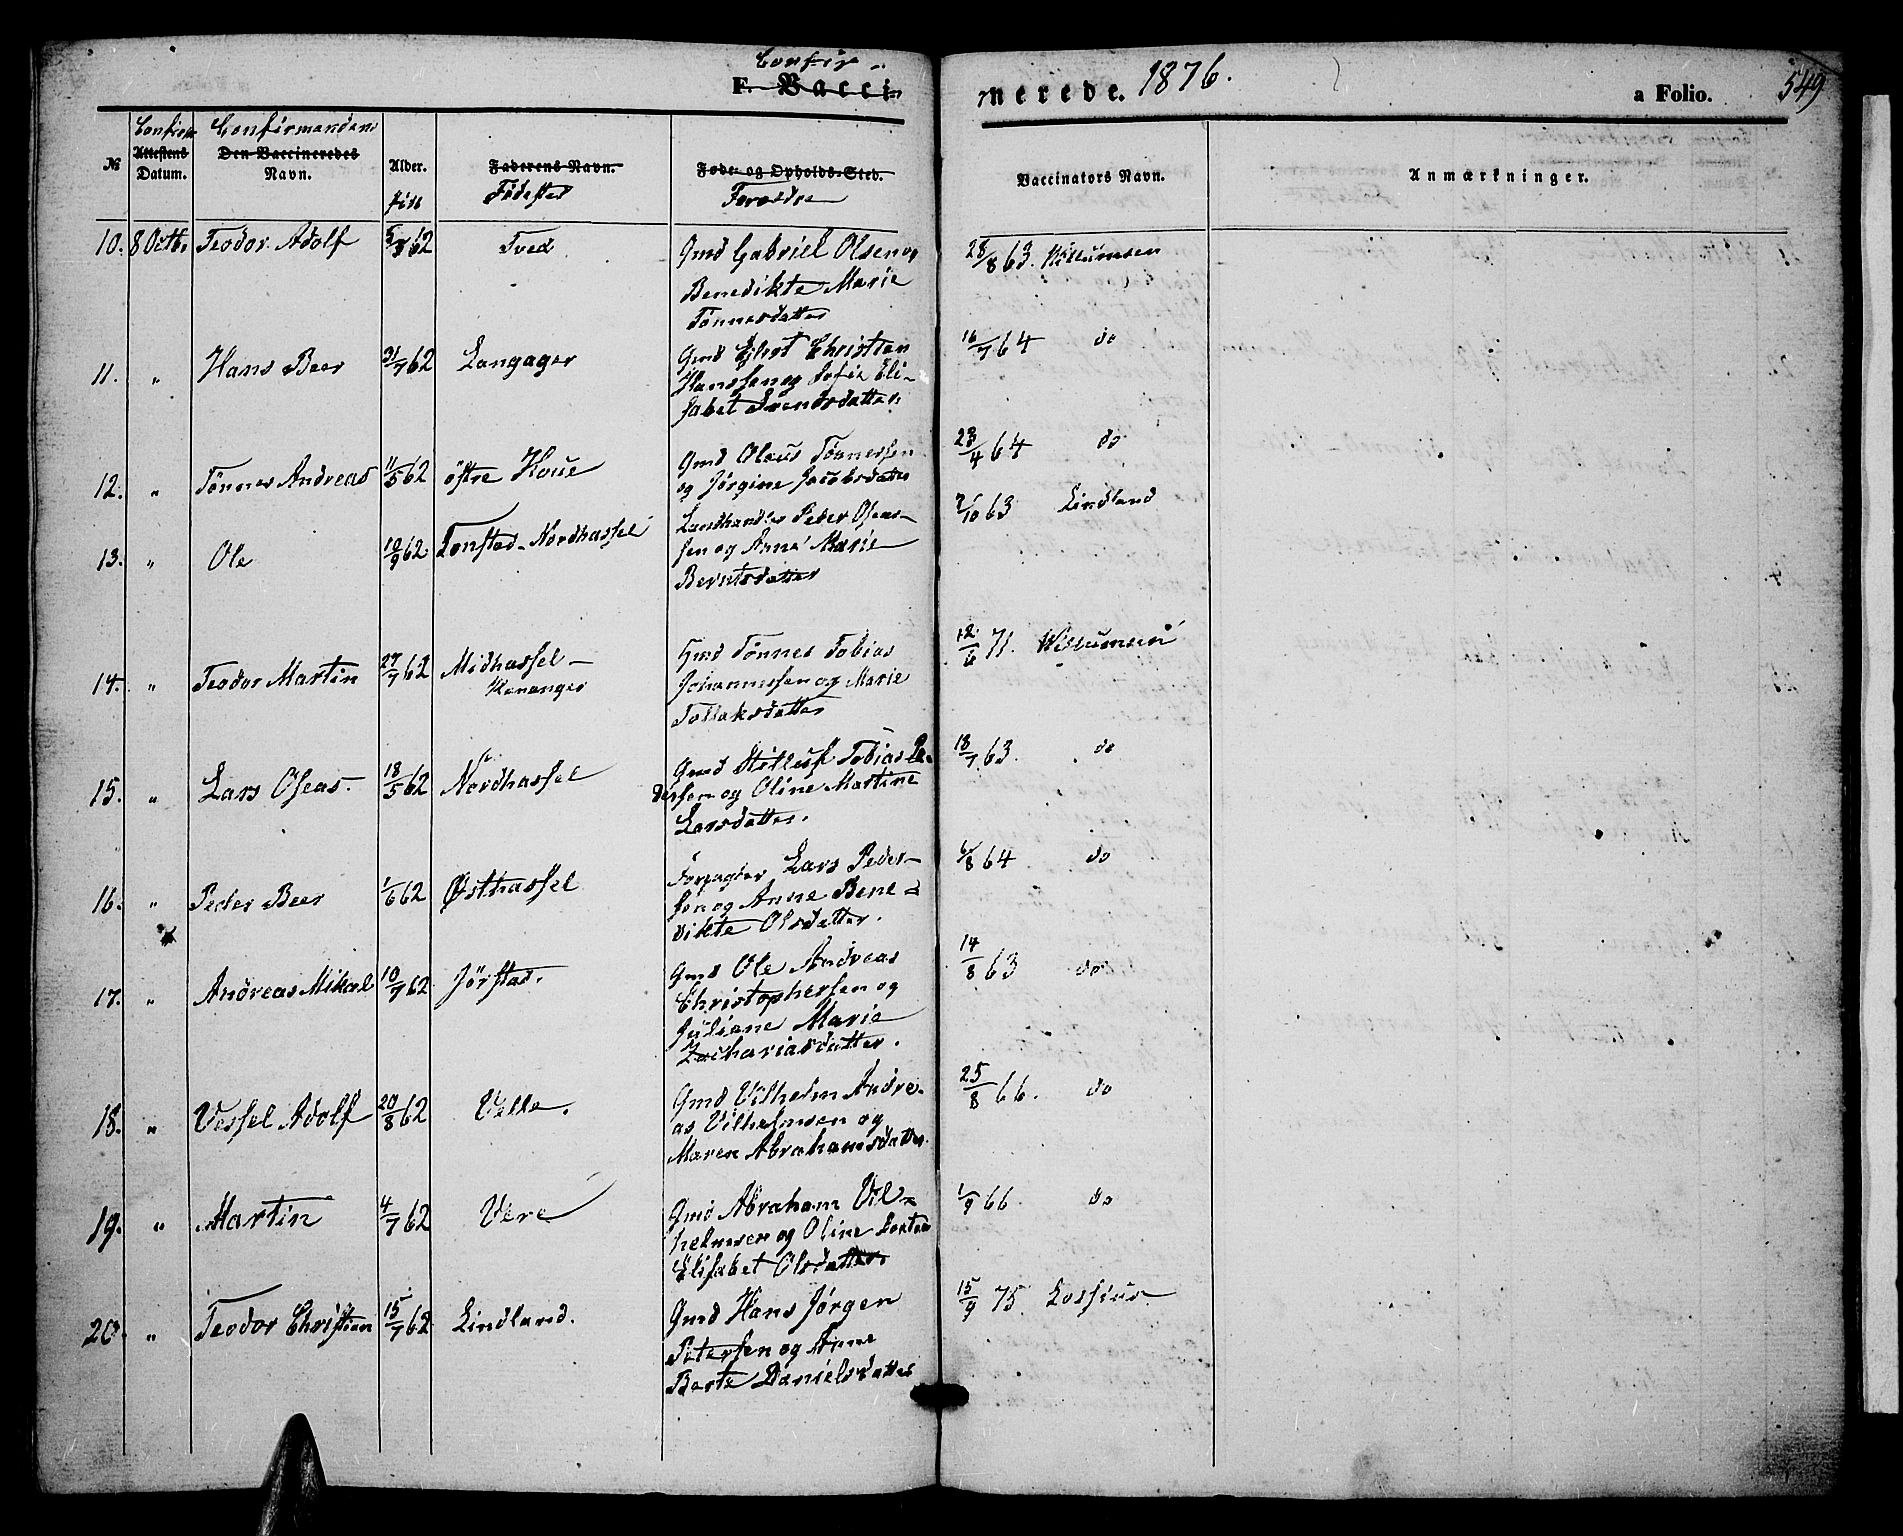 Confir-
F. Vaccinerede. 1876.
a Folio. 549
Confirm Confirmandens
№ Attestens Datum. Den Vaccineredes Navn. Alder. Faderens Navn. Føde- og Opholds-Sted. Vaccinators Navn. Anmærkninger.
Fødested Forældre
10. 8 Octb. Teodor Adolf 5/3 62 Tved Gmd Gabriel Olsen og 28/8 63. Willumsen
Benedikte Marie
Tønnesdatter
11. " Hans Beer 31/7 62 Langager Gmd Eilert Christian 16/7 64 do
Hanssen og Sofie Eli-
sabet Svendsdatter
12. " Tønnes Andreas 11/5 62 østre Houe Gmd Olaus Tønnessen 23/4 64 do
og Jørgine Jacobsdatter
13. " Ole 10/9 62 Tonstad-Nordhassel Landhandler Peder Oseas- 7/10 63 Lindland
sen og Anne Marie
Berntsdatter
14. " Teodor Martin 27/7 62 Midhassel- Gmd Tønnes Tobias 12/6 71. Willumsen
Kananger Johannessen og Marie
Tollaksdatter
15. " Lars Oseas. 18/5 62 Nordhassel Gmd Tobias Pe- 18/7 63. do
dersen og Oline Martine
Larsdatter.
16. " Peder Beer 1/6 62 Østhassel Forpagter Lars Peder- 6/8 64 do
sen og Anne Bene-
dikte Olsdatter.
17. " Andreas Mikal 10/7 62 Jørstad. Gmd Ole Andreas 14/8 63 do
Christophersen og
Juliane Marie
Zachariasdatter.
18. " Vessel Adolf 20/8 62 Velle. Gmd Vilhelm Andre- 25/8 66. do
as Vilhelmsen og
Maren Abrahamsdatter.
19. " Martin 4/7 62 Vere Gmd Abraham Vil- 1/9 66 do
helmsen og Oline
Elisabet Olsdatter
20. " Teodor Christian 15/7 62 Lindland. Gmd Hans Jørgen 15/9 75 Lossius.
Petersen og Anne
Berte Danielsdatter